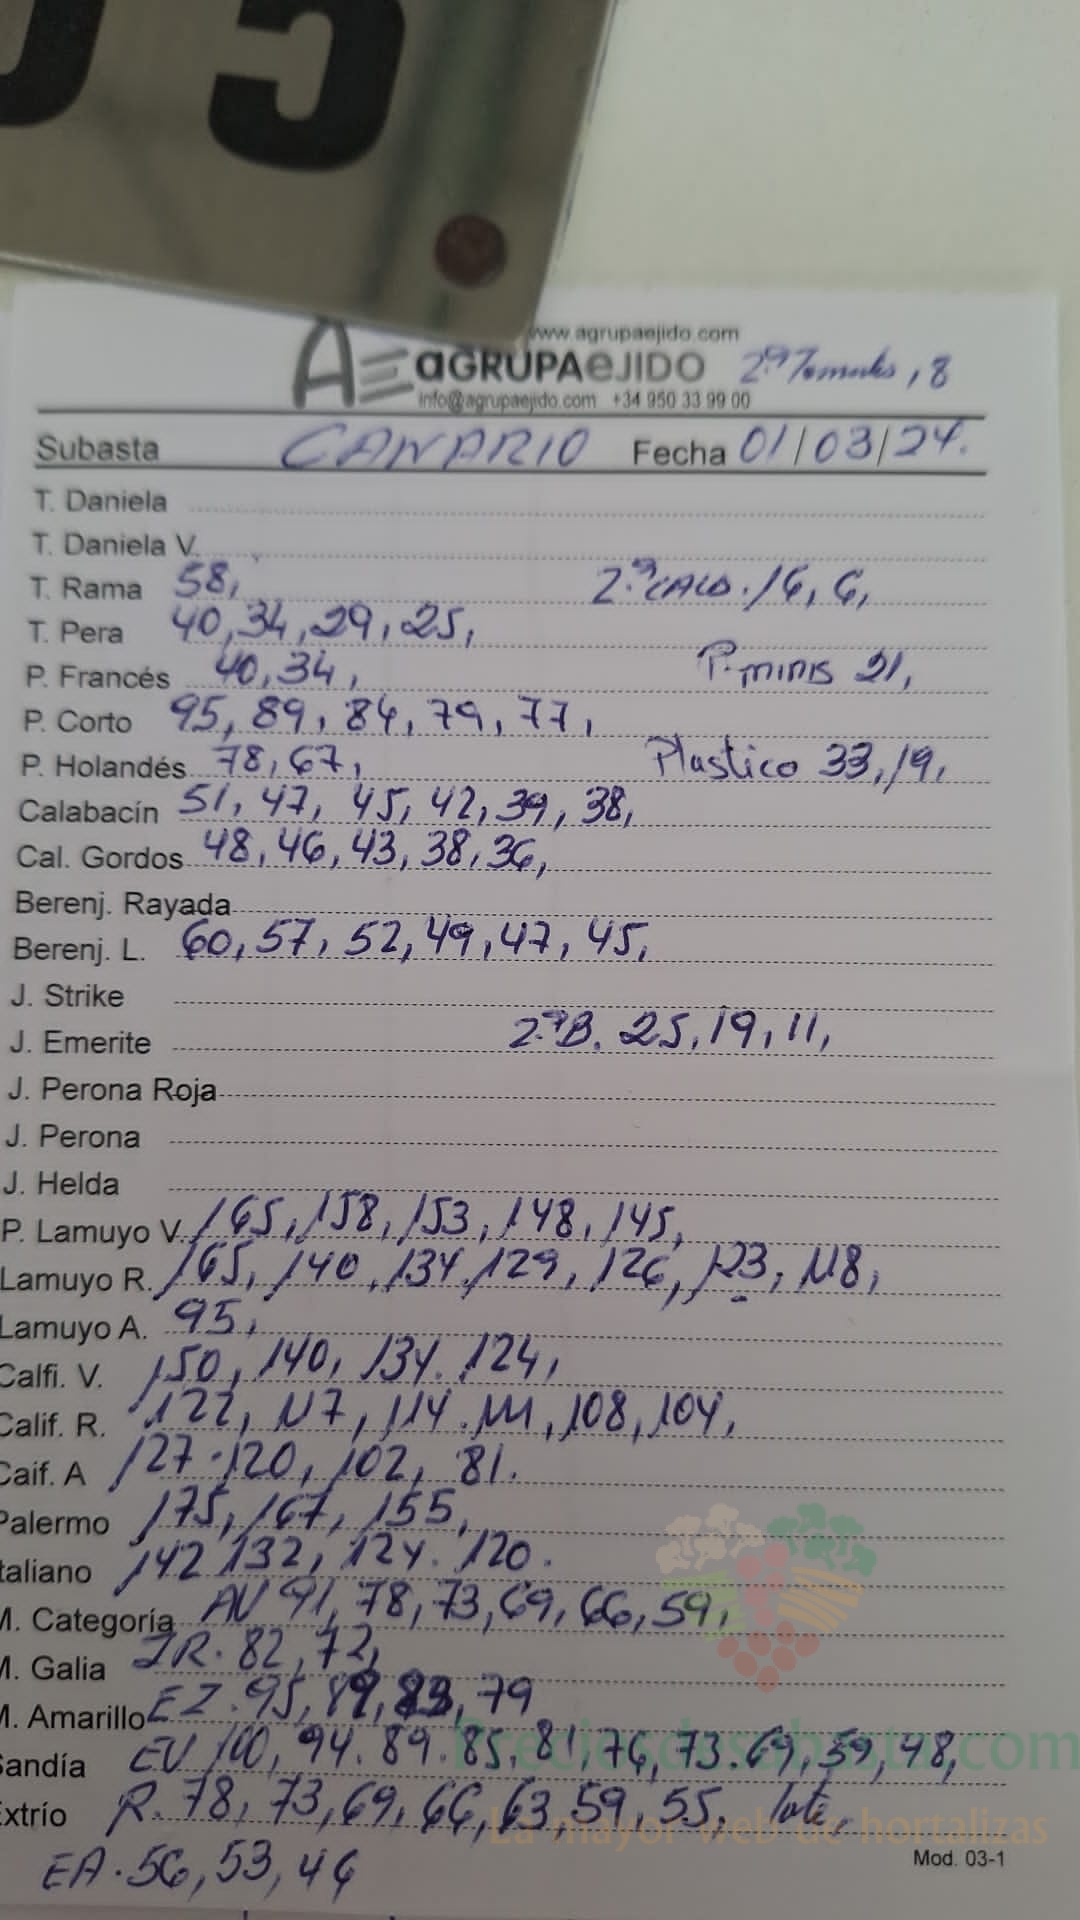 05
www.agrupaejido.com
AE aGRUPAeJIDO 2ª Tomates, 8
info@agrupaejido.com +34 950 33 99 00
Subasta CANARIO Fecha 01/03/24.
T. Daniela
T. Daniela V.
T. Rama 58, 2ª CALD. 16, 6,
T. Pera 40, 34, 29, 25,
P. Francés 40, 34, P. minis 21,
P. Corto 95, 89, 84, 79, 77,
P. Holandés 78, 67, Plastico 33, 19,
Calabacín 51, 47, 45, 42, 39, 38,
Cal. Gordos 48, 46, 43, 38, 36,
Berenj. Rayada
Berenj. L. 60, 57, 52, 49, 47, 45,
J. Strike
J. Emerite 2ª B. 25, 19, 11,
J. Perona Roja
J. Perona
J. Helda
P. Lamuyo V. 165, 158, 153, 148, 145,
Lamuyo R. 165, 140, 134, 129, 126, 123, 118,
Lamuyo A. 95,
Calfi. V. 150, 140, 134. 124,
Calif. R. 122, 117, 114. 111, 108, 104,
Caif. A 127. 120, 102, 81.
Palermo 175, 167, 155,
taliano 142 132, 124. 120.
M. Categoría AV 91, 78, 73, 69, 66, 59,
M. Galia IR. 82, 72,
M. Amarillo EZ. 95, 89, 83, 79
Sandía EV 100, 94. 89. 85, 81, 76, 73. 69, 59, 48,
Preciosdesubasta.com
Extrío R. 78, 73, 69, 66, 63, 59, 55,
La mayor web de hortalizas
EA. 56, 53, 46
Mod. 03-1